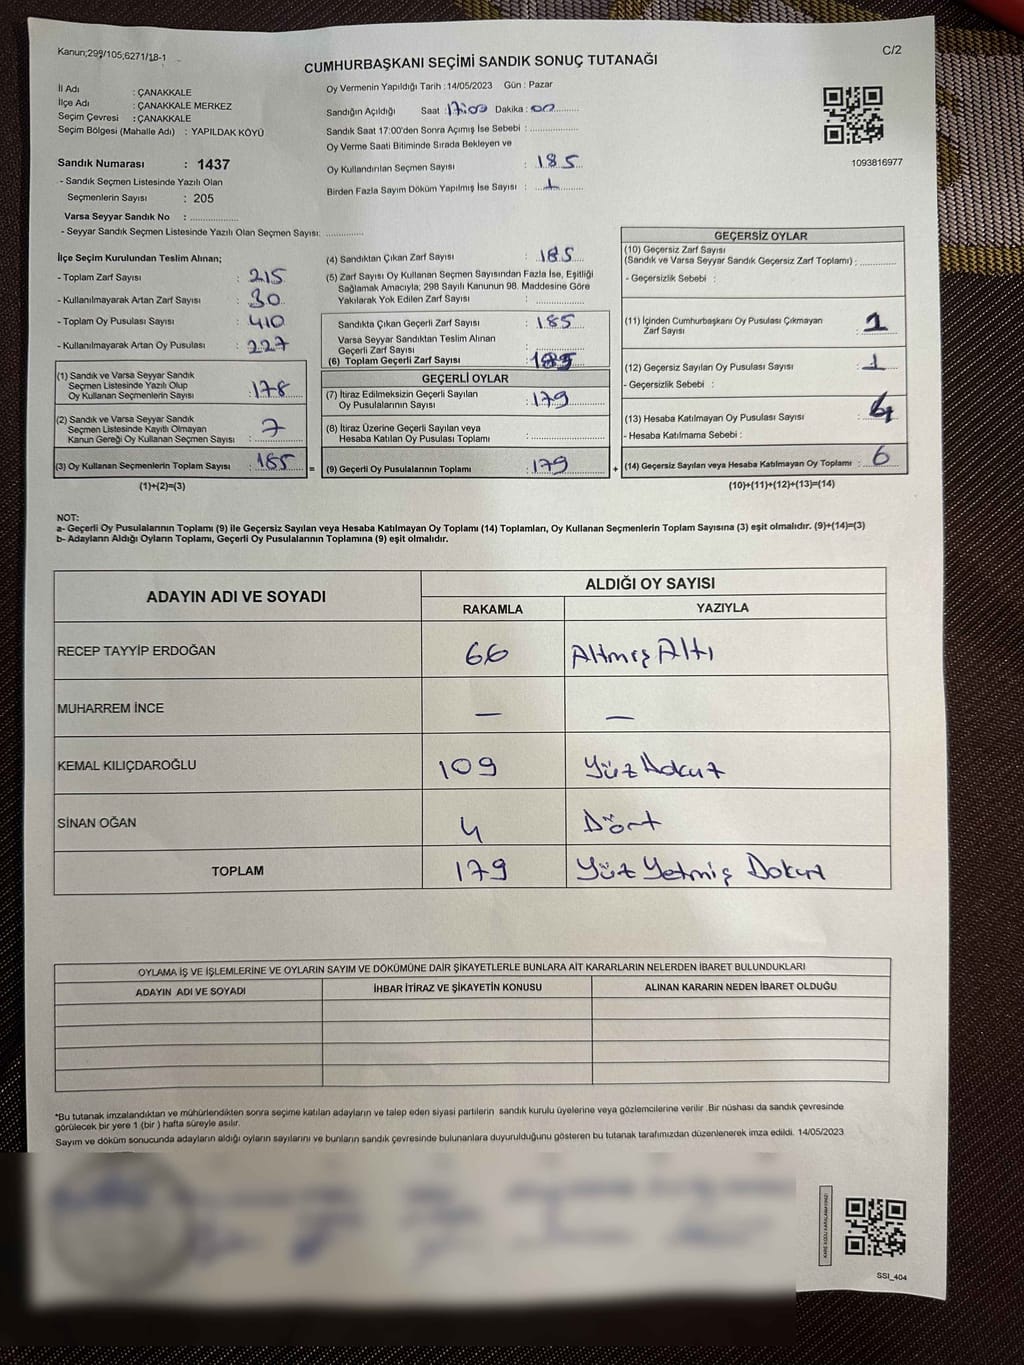 Kanun;299/105;6271/18-1
C/2
CUMHURBAŞKANI SEÇİMİ SANDIK SONUÇ TUTANAĞI
İl Adı : ÇANAKKALE
İlçe Adı : ÇANAKKALE MERKEZ
Seçim Çevresi : ÇANAKKALE
Seçim Bölgesi (Mahalle Adı) : YAPILDAK KÖYÜ
Sandık Numarası : 1437
- Sandık Seçmen Listesinde Yazılı Olan
Seçmenlerin Sayısı : 205
Varsa Seyyar Sandık No : ..................
- Seyyar Sandık Seçmen Listesinde Yazılı Olan Seçmen Sayısı: .............
Oy Vermenin Yapıldığı Tarih : 14/05/2023 Gün : Pazar
Sandığın Açıldığı Saat : 17:00 Dakika : 00
Sandık Saat 17:00'den Sonra Açımış İse Sebebi : ................
Oy Verme Saati Bitiminde Sırada Bekleyen ve
Oy Kullandırılan Seçmen Sayısı : 185
Birden Fazla Sayım Döküm Yapılmış İse Sayısı : 1
1093816977
İlçe Seçim Kurulundan Teslim Alınan;
- Toplam Zarf Sayısı : 215
- Kullanılmayarak Artan Zarf Sayısı : 30
- Toplam Oy Pusulası Sayısı : 410
- Kullanılmayarak Artan Oy Pusulası : 227
(1) Sandık ve Varsa Seyyar Sandık
Seçmen Listesinde Yazılı Olup
Oy Kullanan Seçmenlerin Sayısı : 178
(2) Sandık ve Varsa Seyyar Sandık
Seçmen Listesinde Kayıtlı Olmayan
Kanun Gereği Oy Kullanan Seçmen Sayısı : 7
(3) Oy Kullanan Seçmenlerin Toplam Sayısı : 185
(1)+(2)=(3)
(4) Sandıktan Çıkan Zarf Sayısı : 185
(5) Zarf Sayısı Oy Kullanan Seçmen Sayısından Fazla İse, Eşitliği
Sağlamak Amacıyla; 298 Sayılı Kanunun 98. Maddesine Göre
Yakılarak Yok Edilen Zarf Sayısı : ................
Sandıkta Çıkan Geçerli Zarf Sayısı : 185
Varsa Seyyar Sandıktan Teslim Alınan
Geçerli Zarf Sayısı : ................
(6) Toplam Geçerli Zarf Sayısı : 185
GEÇERLİ OYLAR
(7) İtiraz Edilmeksizin Geçerli Sayılan
Oy Pusulalarının Sayısı : 179
(8) İtiraz Üzerine Geçerli Sayılan veya
Hesaba Katılan Oy Pusulası Toplamı : ................
= (9) Geçerli Oy Pusulalarının Toplamı : 179 +
GEÇERSİZ OYLAR
(10) Geçersiz Zarf Sayısı
(Sandık ve Varsa Seyyar Sandık Geçersiz Zarf Toplamı) : ............
- Geçersizlik Sebebi :
(11) İçinden Cumhurbaşkanı Oy Pusulası Çıkmayan
Zarf Sayısı : 1
(12) Geçersiz Sayılan Oy Pusulası Sayısı : 1
- Geçersizlik Sebebi :
(13) Hesaba Katılmayan Oy Pusulası Sayısı : 4
- Hesaba Katılmama Sebebi :
(14) Geçersiz Sayılan veya Hesaba Katılmayan Oy Toplamı : 6
(10)+(11)+(12)+(13)=(14)
NOT:
a- Geçerli Oy Pusulalarının Toplamı (9) ile Geçersiz Sayılan veya Hesaba Katılmayan Oy Toplamı (14) Toplamları, Oy Kullanan Seçmenlerin Toplam Sayısına (3) eşit olmalıdır. (9)+(14)=(3)
b- Adayların Aldığı Oyların Toplamı, Geçerli Oy Pusulalarının Toplamına (9) eşit olmalıdır.
ADAYIN ADI VE SOYADI
ALDIĞI OY SAYISI
RAKAMLA YAZIYLA
RECEP TAYYİP ERDOĞAN 66 Altmış Altı
MUHARREM İNCE — —
KEMAL KILIÇDAROĞLU 109 Yüz Dokuz
SİNAN OĞAN 4 Dört
TOPLAM 179 Yüz Yetmiş Dokuz
OYLAMA İŞ VE İŞLEMLERİNE VE OYLARIN SAYIM VE DÖKÜMÜNE DAİR ŞİKAYETLERLE BUNLARA AİT KARARLARIN NELERDEN İBARET BULUNDUKLARI
ADAYIN ADI VE SOYADI İHBAR İTİRAZ VE ŞİKAYETİN KONUSU ALINAN KARARIN NEDEN İBARET OLDUĞU
*Bu tutanak imzalandıktan ve mühürlendikten sonra seçime katılan adayların ve talep eden siyasi partilerin sandık kurulu üyelerine veya gözlemcilerine verilir .Bir nüshası da sandık çevresinde
görülecek bir yere 1 (bir ) hafta süreyle asılır.
Sayım ve döküm sonucunda adayların aldığı oyların sayılarını ve bunların sandık çevresinde bulunanlara duyurulduğunu gösteren bu tutanak tarafımızdan düzenlenerek imza edildi. 14/05/2023
SSI_404